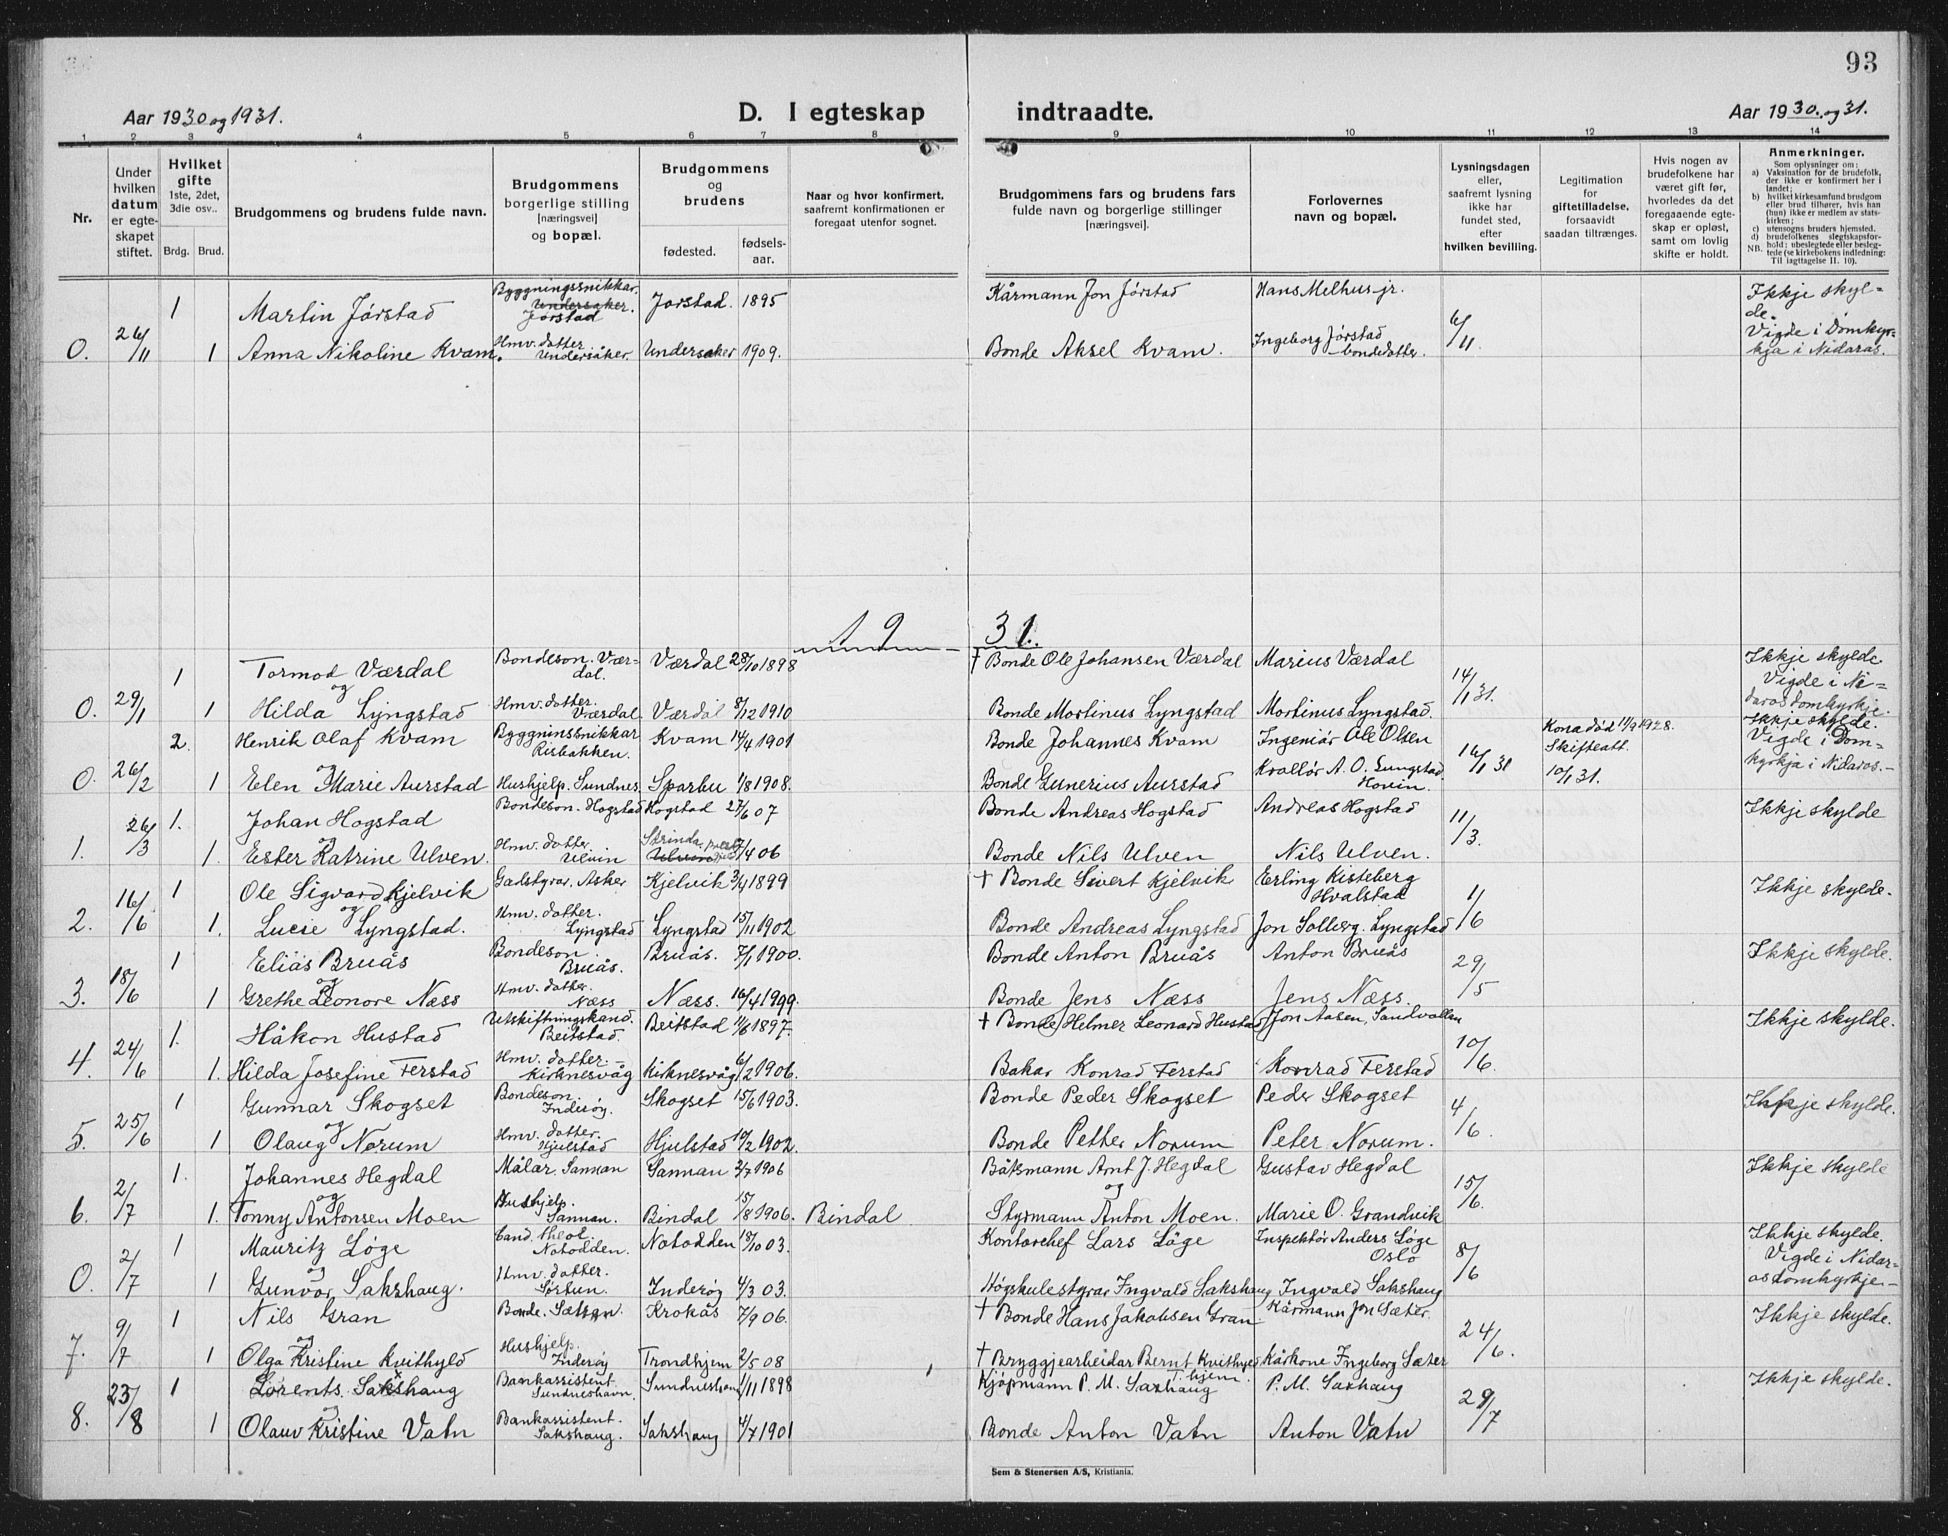 93
Aar 1930 og 1931.
D. I egteskap indtraadte.
Aar 1930. og 31.
1 2 3 4 5 6 7 8 9 10 11 12 13 14
Nr.
Under hvilken datum er egteskapet stiftet.
Hvilket gifte 1ste, 2det, 3die osv..
Brdg. Brud.
Brudgommens og brudens fulde navn.
Brudgommens borgerlige stilling [næringsvei] og bopæl.
Brudgommens og brudens
fødested.
fødselsaar.
Naar og hvor konfirmert, saafremt konfirmationen er foregaat utenfor sognet.
Brudgommens fars og brudens fars fulde navn og borgerlige stillinger [næringsvei].
Forlovernes navn og bopæl.
Lysningsdagen eller, saafremt lysning ikke har fundet sted, efter hvilken bevilling.
Legitimation for giftetilladelse, forsaavidt saadan tiltrænges.
Hvis nogen av brudefolkene har været gift før, hvorledes da det foregaaende egteskap er opløst, samt om lovlig skifte er holdt.
Anmerkninger.
Som oplysninger om:
a) Vaksination for de brudefolk, der ikke er konfirmert her i landet;
b) hvilket kirkesamfund brudgom eller brud tilhører, hvis han (hun) ikke er medlem av statskirken;
c) utensogns bruders hjemsted.
d) brudefolkenes slegtskapsforhold; ubeslegtede eller beslegtede (se kirkebokens indledning: Til iagttagelse II. 10).
NB.
1 Martin Jørstad Byggningssnikkar. Undersaker. Jørstad Jørstad. 1895 Kårmann Jon Jørstad Hans Melhus jr. Ikkje skylde.
0. 26/11 1 Anna Nikoline Kvam. Hmv. dotter Undersåker. Undersaker 1909. Bonde Aksel Kvam. Ingeborg Jørstad bondedotter. 6/11 Vigde i Domkyrkja i Nidaros.
1931.
1 Tormod Værdal Bondeson. Værdal. Værdal 28/10 1898 † Bonde Ole Johansen Værdal Marius Værdal Ikkje skylde
og
0. 29/1 1 Hilda Lyngstad Hmv. dotter. Værdal Værdal 8/12 1910 Bonde Mortinus Lyngstad Mortinus Lyngstad. 14/1 31. Vigde i Nidaros domkyrkje.
2. Henrik Olaf Kvam Byggninssnikkar Risbakken. Kvam 14/4 1901 Bonde Johannes Kvam Ingeniør Ole Olsen Kona død 11/9 1928. Skifteatt. 10/1 31. Ikkje skylde.
og
0. 26/2 1 Elen Marie Aurstad Hushjelp. Sundnes Sparbu 1/8 1908. Bonde Gunerius Aurstad A. O. Lungstad Hovin. 16/1 31 Vigde i Domkyrkja i Nidaros.
1. Johan Hogstad Bondeson. Hogstad Hogstad 27/6 07 Bonde Andreas Hogstad Andreas Hogstad Ikkje skylde
og
1. 26/3 1. Ester Katrine Ulven. Hmv. dotter. Ulvin Strinda 7/4 06 Bonde Nils Ulven Nils Ulven. 11/3.
1 Ole Sigvard Kjelvik Gadstyrar. Asker Kjelvik 3/4 1899 † Bonde Sivert Kjelvik Erling Kisteberg Hvalstad Ikkje skylde.
og
2. 16/6 1. Lucie Lyngstad. Hmv. dotter. Lyngstad Lyngstad 15/11 1902 Bonde Andreas Lyngstad Jon Solberg. Lyngstad 1/6
1 Elias Bruås Bondeson. Bruås. Bruås. 7/1 1900. Bonde Anton Bruås Anton Bruås Ikkje skylde.
og
3. 18/6 1 Grethe Leonore Næss Hmv. dotter. Næss Næss. 16/4 1999. Bonde Jens Næss Jens Næss. 29/5
1. Håkon Hustad Utskiftningskand. Beitstad. Beitstad 11/6 1897. † Bonde Helmer Leonard Hustad Jon Aasen, Sandvollan Ikkje skylde.
4. 24/6 1. Hilda Josefine Ferstad Hmv. dotter. Kirknesvåg Kirknesvåg 6/2 1906. Bakar Konrad Ferstad Konrad Ferstad 10/6.
1 Gunnar Skogset Bondeson Inderøy. Skogset 15/6 1903. Bonde Peder Skogset Peder Skogset Ikkje skylde.
og
5. 25/6 1 Olaug Norum Hmv. dotter. Hjulstad Hjulstad 10/2 1902. Bonde Petter Norum Peter Norum. 4/6.
1. Johannes Hegdal Målar. Sannan Sannan 2/7 1906 Båtsmann Arnt J. Hegdal Gustav Hegdal Ikkje skylde
og og
6. 2/7 1. Tonny Antonsen Moen Hushjelp. Sannan. Bindal 15/8 1906. Bindal Styrmann Anton Moen. Marie O. Grandvik 15/6.
1 Mauritz Løge Cand. theol. Notodden. Notodden 18/10 03. Kontorchef Lars Løge Inspektør Anders Løge Oslo Ikkje skylde.
og
0. 2/7 1 Gunvor Sakshaug. Hmv. dotter. Sørtun. Inderøy 4/3 03. Høgskulestyrar Ingvald Sakshaug Ingvald Sakshaug 8/6 Vigde i Nidaros domkyrkje.
1 Nils Gran Bonde. Krokås 7/9 06. † Bonde Hans Jakobsen Gran Kårmann Jon Sæter. Ikkje skylde.
og
7. 9/7 1 Olga Kristine Kvithyld Hushjelp. Inderøy Trondhjem 2/5 08 † Bryggjearbeidar Bernt Kvithyld T.hjem. Kårkone Ingeborg Sæter 24/6.
1 Lorents Sakshaug Bankassistent Sundneshavn. Sundneshavn 1/11 1898 Kjøpmann P. M. Saxhaug P. M. Saxhaug Ikkje skylde.
og
8. 23/8 1 Olauv Kristine Vatn Bankassistent. Sakshaug. Sakshaug 4/7 1901 Bonde Anton Vatn Anton Vatn 29/7
Sem & Stenersen A/S, Kristiania.